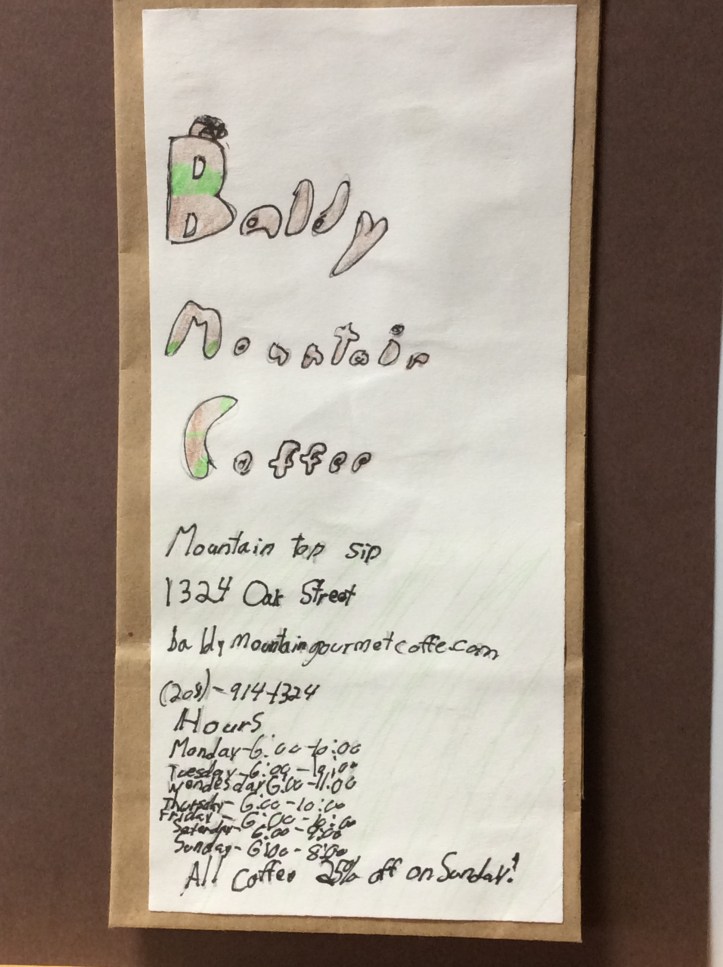 Baldy
Mountain
Coffee
Mountain top sip
1324 Oak Street
baldymountaingourmetcoffe.com
(208)-914-1324
Hours
Monday-6:00-10:00
Tuesday-6:00-10:00
Wendesday 6:00-11:00
Thursday-6:00-10:00
Friday-6:00-10:00
Saterday-6:00-9:00
Sunday-6:00-8:00
All Coffee 25% off on Sunday!